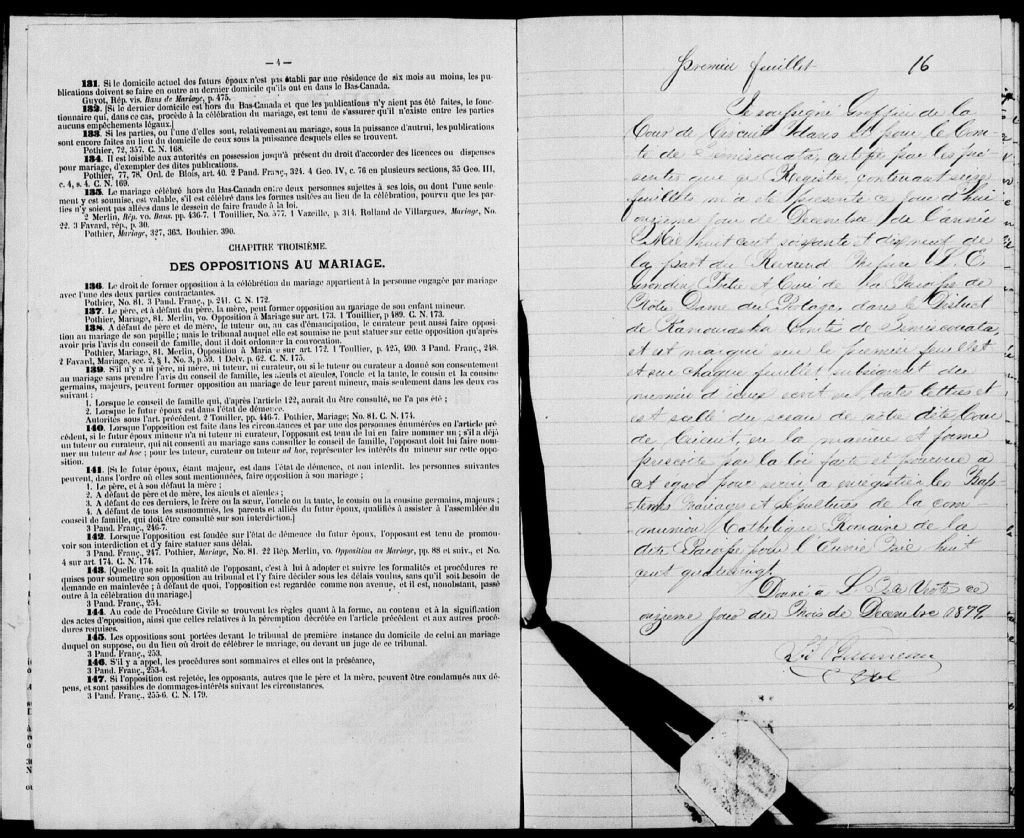 — 4 —
131. Si le domicile actuel des futurs époux n'est pas établi par une résidence de six mois au moins, les pu-
blications doivent se faire en outre au dernier domicile qu'ils ont eu dans le Bas-Canada.
Guyot, Rép. vis. Bans de Mariage, p. 475.
132. [Si le dernier domicile est hors du Bas-Canada et que les publications n'y aient pas été faites, le fonc-
tionnaire qui, dans ce cas, procède à la célébration du mariage, est tenu de s'assurer qu'il n'existe entre les parties
aucuns empêchements légaux.]
133. Si les parties, ou l'une d'elles sont, relativement au mariage, sous la puissance d'autrui, les publications
sont encore faites au lieu du domicile de ceux sous la puissance desquels elles se trouvent.
Pothier, 72, 357. C. N. 168.
134. Il est loisible aux autorités en possession jusqu'à présent du droit d'accorder des licences ou dispenses
pour mariage, d'exempter des dites publications.
Pothier, 77, 78. Ord. de Blois, art. 40. 2 Pand. Franç., 324. 4 Geo. IV, c. 76 en plusieurs sections, 35 Geo. III,
c. 4, s. 4. C. N. 169.
135. Le mariage célébré hors du Bas-Canada entre deux personnes sujettes à ses lois, ou dont l'une seule-
ment y est soumise, est valable, s'il est célébré dans les formes usitées au lieu de la célébration, pourvu que les par-
ties n'y soient pas allées dans le dessein de faire fraude à la loi.
2 Merlin, Rép. vo. Bans, pp. 436-7. 1 Touillier, No. 577. 1 Vazeille, p. 314. Rolland de Villargues, Mariage, No.
22. 3 Favard, rép., p. 30.
Pothier, Mariage, 327, 363. Bouhier. 390.
CHAPITRE TROISIÈME.
DES OPPOSITIONS AU MARIAGE.
136. Le droit de former opposition à la célébration du mariage appartient à la personne engagée par mariage
avec l'une des deux parties contractantes.
Pothier, No. 81. 3 Pand. Franç., p. 241. C. N. 172.
137. Le père, et à défaut du père, la mère, peut former opposition au mariage de son enfant mineur.
Pothier, Mariage, 81. Merlin, vo. Opposition au Mariage sur art. 173. 1 Touillier, p 489. C. N. 173.
138. A défaut de père et de mère, le tuteur, ou, au cas d'émancipation, le curateur peut aussi faire opposi-
tion au mariage de son pupille; mais le tribunal auquel elle est soumise ne peut statuer sur cette opposition qu'après
avoir pris l'avis du conseil de famille, dont il doit ordonner la convocation.
Pothier, Mariage, 81. Merlin, Opposition à Maria e sur art. 172. 1 Toullier, p 425, 490. 3 Pand. Franç., 248.
2 Favard, Mariage, sec. 2, § 1, No. 3, p. 59. 1 Delv. p. 62. C. N. 175.
139. S'il n'y a ni père, ni mère, ni tuteur, ni curateur, ou si le tuteur ou curateur a donné son consentement
au mariage sans prendre l'avis du conseil de famille, les aïeuls et aïeules, l'oncle et la tante, le cousin et la cousine
germains, majeurs, peuvent former opposition au mariage de leur parent mineur, mais seulement dans les deux cas
suivant :
1. Lorsque le conseil de famille qui, d'après l'article 122, aurait du être consulté, ne l'a pas été ;
2. Lorsque le futur époux est dans l'état de démence.
Autorités sous l'art. précédent. 2 Touiller, pp. 446-7. Pothier, Mariage; No. 81. C. N. 174.
140. Lorsque l'opposition est faite dans les circonstances et par une des personnes énumérées en l'article pré-
cédent, si le futur époux mineur n'a ni tuteur ni curateur, l'opposant est tenu de lui en faire nommer un ; s'il a déjà
un tuteur ou curateur, qui ait consenti au mariage sans consulter le conseil de famille, l'opposant doit lui faire nom-
mer un tuteur ad hoc ; pour les tuteur, curateur ou tuteur ad hoc, représenter les intérêts du mineur sur cette oppo-
sition.
141. [Si le futur époux, étant majeur, est dans l'état de démence, et non interdit. les personnes suivantes
peuvent, dans l'ordre où elles sont mentionnées, faire opposition à son mariage ;
1. Le père, et à son défaut la mère ;
2. A défaut de père et de mère, les aïeuls et aïeules ;
3. A défaut de ces derniers, le frère ou la sœur, l'oncle ou la tante, le cousin ou la cousine germains, majeurs ;
4. A défaut de tous les susnommés, les parents et alliés du futur époux, qualifiés à assister à l'assemblée du
conseil de famille, qui doit être consulté sur son interdiction.]
3 Pand. Franç., 246-7.
142. Lorsque l'opposition est fondée sur l'état de démence du futur époux, l'opposant est tenu de promou-
voir son interdiction et d'y faire statuer sans délai.
3 Pand. Franç., 247. Pothier, Mariage, No. 81. 22 Rép. Merlin, vo. Opposition au Mariage, pp. 88 et suiv., et No.
4 sur art. 174. C. N. 174.
143. [Quelle que soit la qualité de l'opposant, c'est à lui à adopter et suivre les formalités et procédures re
quises pour soumettre son opposition au tribunal et l'y faire décider sous les délais voulus, sans qu'il soit besoin de
demande en mainlevée ; à défaut de quoi, l'opposition est regardée comme non avenue, et il est, nonobstant, passé
outre à la célébration du mariage.]
3 Pand. Franç., 254.
144. Au code de Procédure Civile se trouvent les règles quant à la forme, au contenu et à la signification
des actes d'opposition, ainsi que celles relatives à la péremption décrétée en l'article précédent et aux autres procé-
dures requises.
145. Les oppositions sont portées devant le tribunal de première instance du domicile de celui au mariage
duquel on suppose, ou du lieu où droit de célébrer le mariage, ou devant un juge de ce tribunal.
3 Pand. Franç., 253.
146. S'il y a appel, les procédures sont sommaires et elles ont la préséance,
3 Pand. Franç., 253-4.
147. Si l'opposition est rejetée, les opposants, autres que le père et la mère, peuvent être condamnés aux dé-
pens, et sont passibles de dommages-intérêts suivant les circonstances.
3 Pand. Franç., 255-6. C. N. 179.
Premier feuillet 16
Je soussigné Greffier de la
Cour de Circuit dans et pour le Com-
té de Témiscouata, certifie par les pré-
sentes que ce Registre, contenant seize
feuillets m'a été présenté ce jour d'hui
onzième jour de Décembre de l'année
Mil huit cent soixante et dix neuf de
la part du Révérend Messire L. E.
Prêtre et Curé de la Paroisse de
Notre Dame du Portage, dans le District
de Kamouraska Comté de Témiscouata,
et est marqué sur le premier feuillet
et sur chaque feuillet subséquent du
numéro d'iceux écrit en toute lettres et
est scellé du sceau de notre dite Cour
de Circuit, en la manière et forme
prescrite par la loi faite et pourvue à
cet égard pour servir à enregistrer les Bap-
têmes Mariages et Sépultures de la com-
munion Catholique Romaine de la
dite Paroisse pour l'Année Mil huit
cent quatrevingt
Donné à
onzième jour du Mois de Décembre 1879